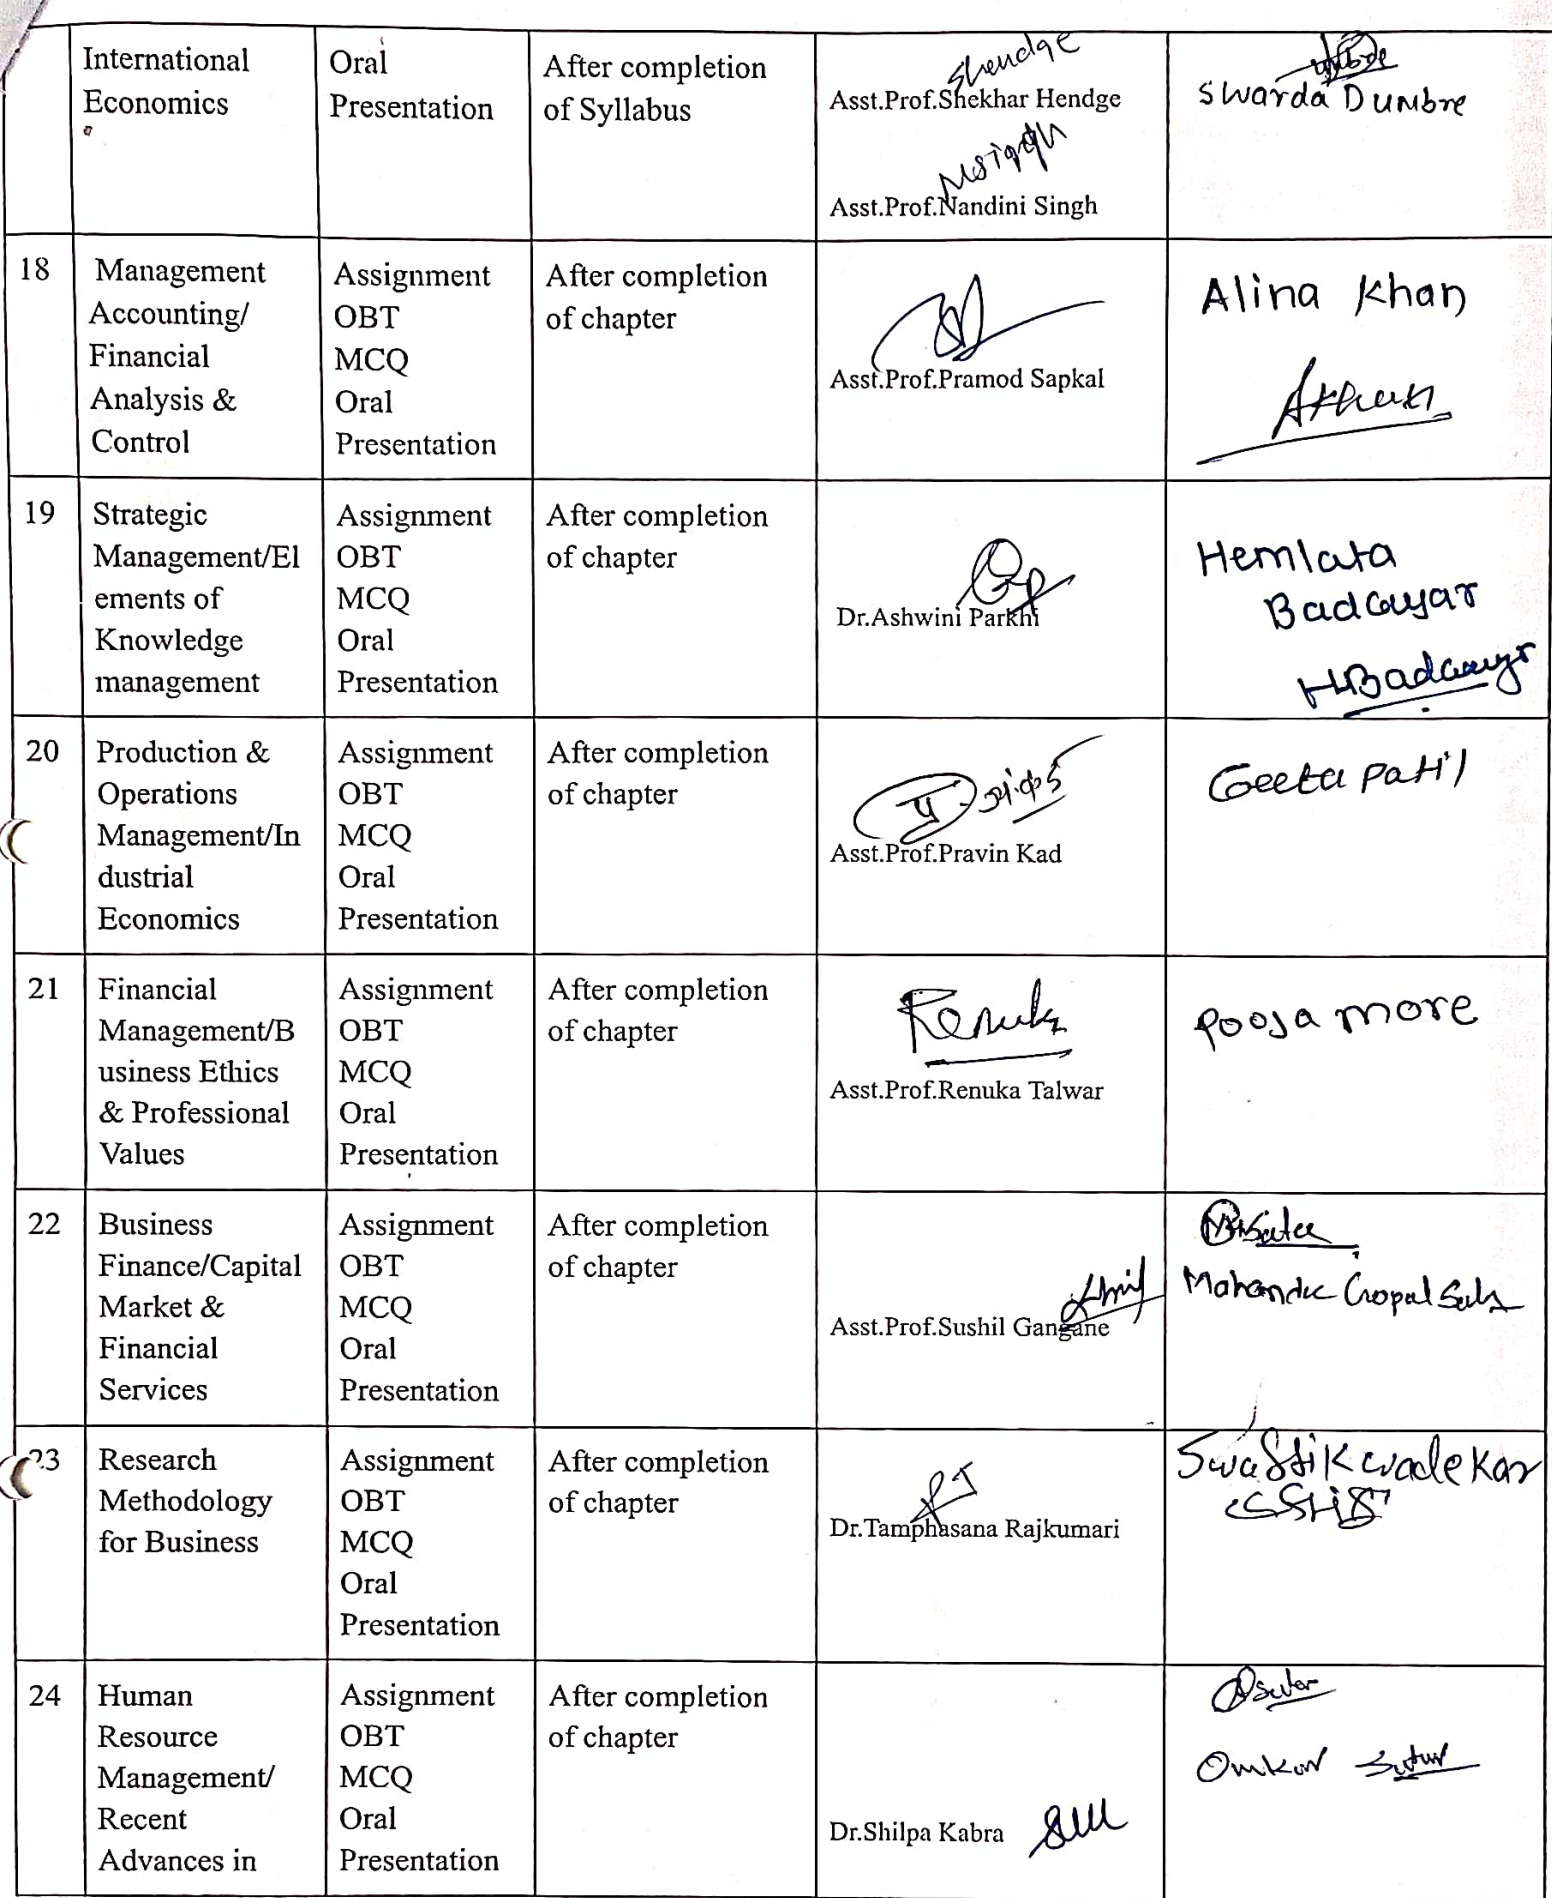 International
Economics
Oral
Presentation
After completion
of Syllabus
Shendge
Asst.Prof.Shekhar Hendge
Nsingh
Asst.Prof.Nandini Singh
Swarda Dumbre
18
Management
Accounting/
Financial
Analysis &
Control
Assignment
OBT
MCQ
Oral
Presentation
After completion
of chapter
Asst.Prof.Pramod Sapkal
Alina Khan
AKhan
19
Strategic
Management/El
ements of
Knowledge
management
Assignment
OBT
MCQ
Oral
Presentation
After completion
of chapter
Dr.Ashwini Parkhi
Hemlata
Badgayar
20
Production &
Operations
Management/In
dustrial
Economics
Assignment
OBT
MCQ
Oral
Presentation
After completion
of chapter
Asst.Prof.Pravin Kad
Geeta Patil
21
Financial
Management/B
usiness Ethics
& Professional
Values
Assignment
OBT
MCQ
Oral
Presentation
After completion
of chapter
Renuka
Asst.Prof.Renuka Talwar
Pooja more
22
Business
Finance/Capital
Market &
Financial
Services
Assignment
OBT
MCQ
Oral
Presentation
After completion
of chapter
Asst.Prof.Sushil Gangane
Gopal
23
Research
Methodology
for Business
Assignment
OBT
MCQ
Oral
Presentation
After completion
of chapter
Dr.Tamphasana Rajkumari
Swastik wadekar
24
Human
Resource
Management/
Recent
Advances in
Assignment
OBT
MCQ
Oral
Presentation
After completion
of chapter
Dr.Shilpa Kabra
Osutar
Omkar Sutar